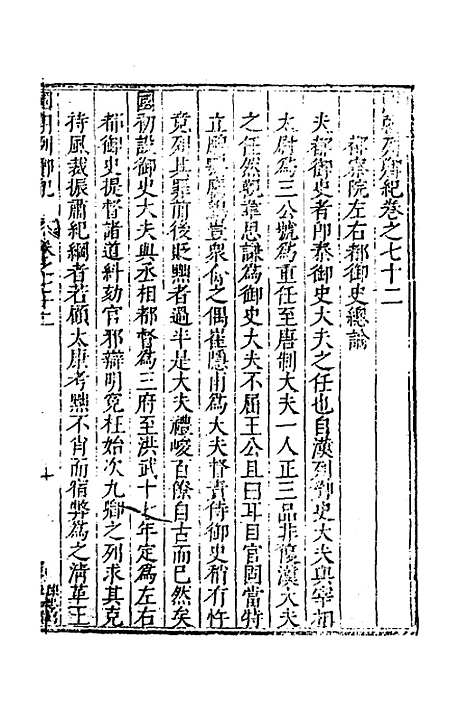 國朝列卿紀卷之七十二
都察院左右都御史總論
夫都御史者即秦御史大夫之任也自漢列御史大夫與宰相
太尉爲三公號爲重任至唐制大夫一人正三品非復漢大夫
之任然觀韋思謙爲御史大夫不屈王公且曰耳目官固當特
立鵰鶚鷹鸇豈衆禽之偶崔隱甫爲大夫督責侍御史稍有忤
竟列其罪前後貶黜者過半是大夫禮峻百僚自古而已然矣
國初設御史大夫與丞相都督爲三府至洪武十七年定爲左右
都御史提督諸道糾劾官邪辯明冤枉始次九卿之列求其克
持風裁振肅紀綱者若顧太康考黜不肖而宿弊爲之清革王
國朝列卿紀 卷之七十二